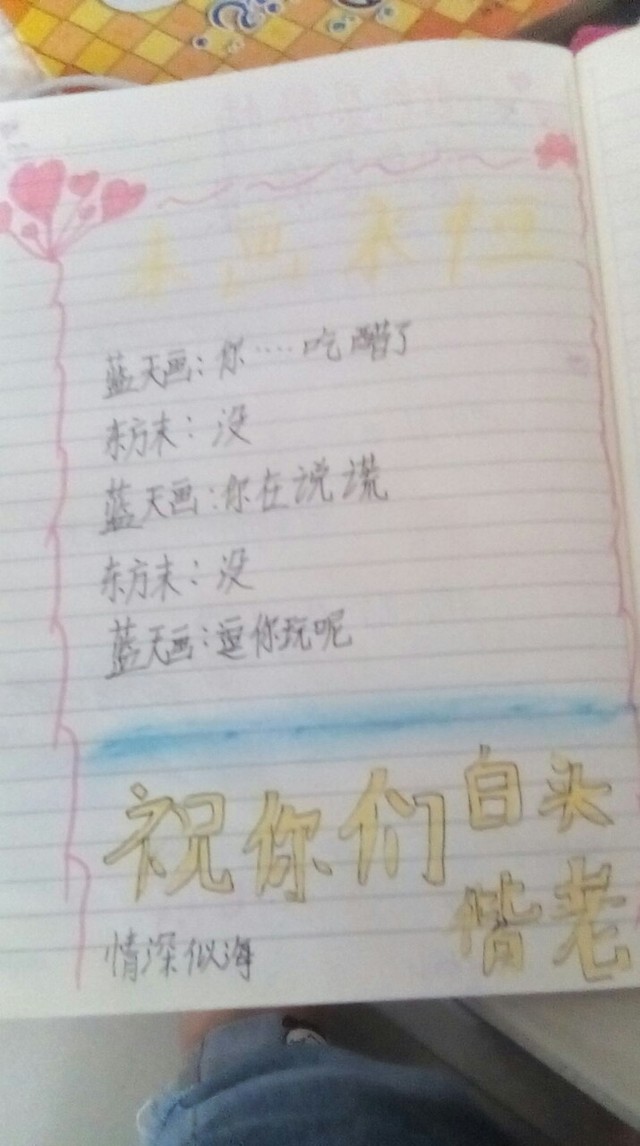 末画末恒
蓝天画：你……吃醋了
东方末：没
蓝天画：你在说谎
东方末：没
蓝天画：逗你玩呢
祝你们白头
偕老
情深似海